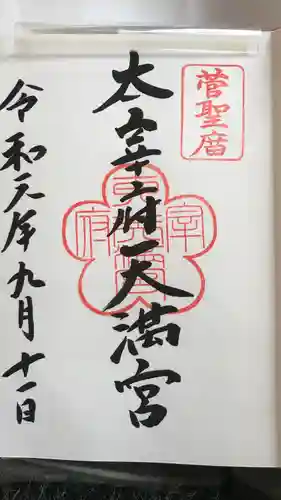 菅聖庿
太宰府天満宮
令和元年九月十一日